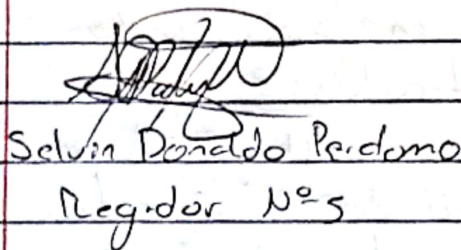 Selvin Donaldo Perdomo
Regidor Nº 5